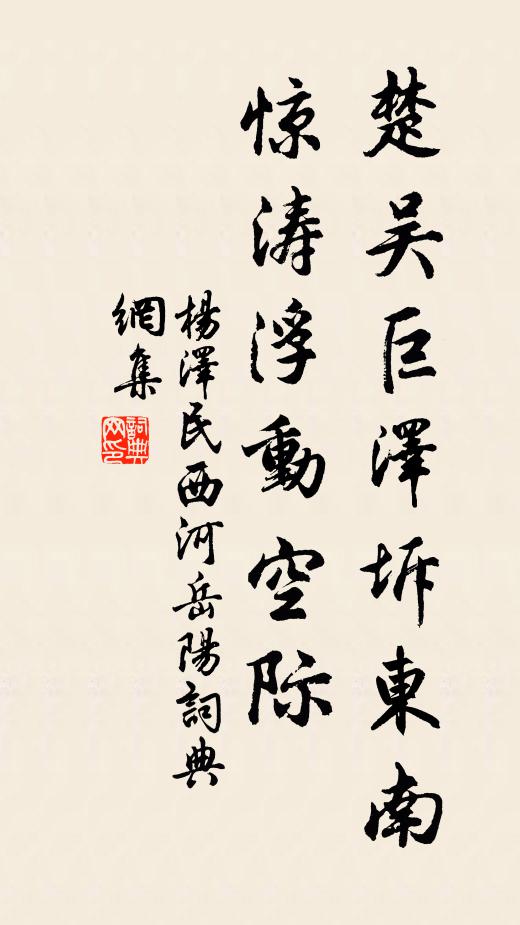 楚吴巨澤坼東南
惊涛浮動空际
楊澤民西河岳陽詞典
網集
詞典
网印